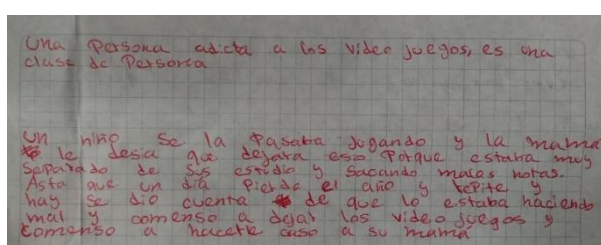 Una Persona adicta a los video juegos, es una
clase de Persona
un niño se la Pasaba Jugando y la mama
le desia que dejara eso Porque estaba muy
Separado de Sus estudio y Sacando malas notas.
Asta que un dia Pierde el año y repite y
hay se dio cuenta de que lo estaba haciendo
mal y comenso a dejar los video Juegos y
comenso a hacerle caso a su mamá